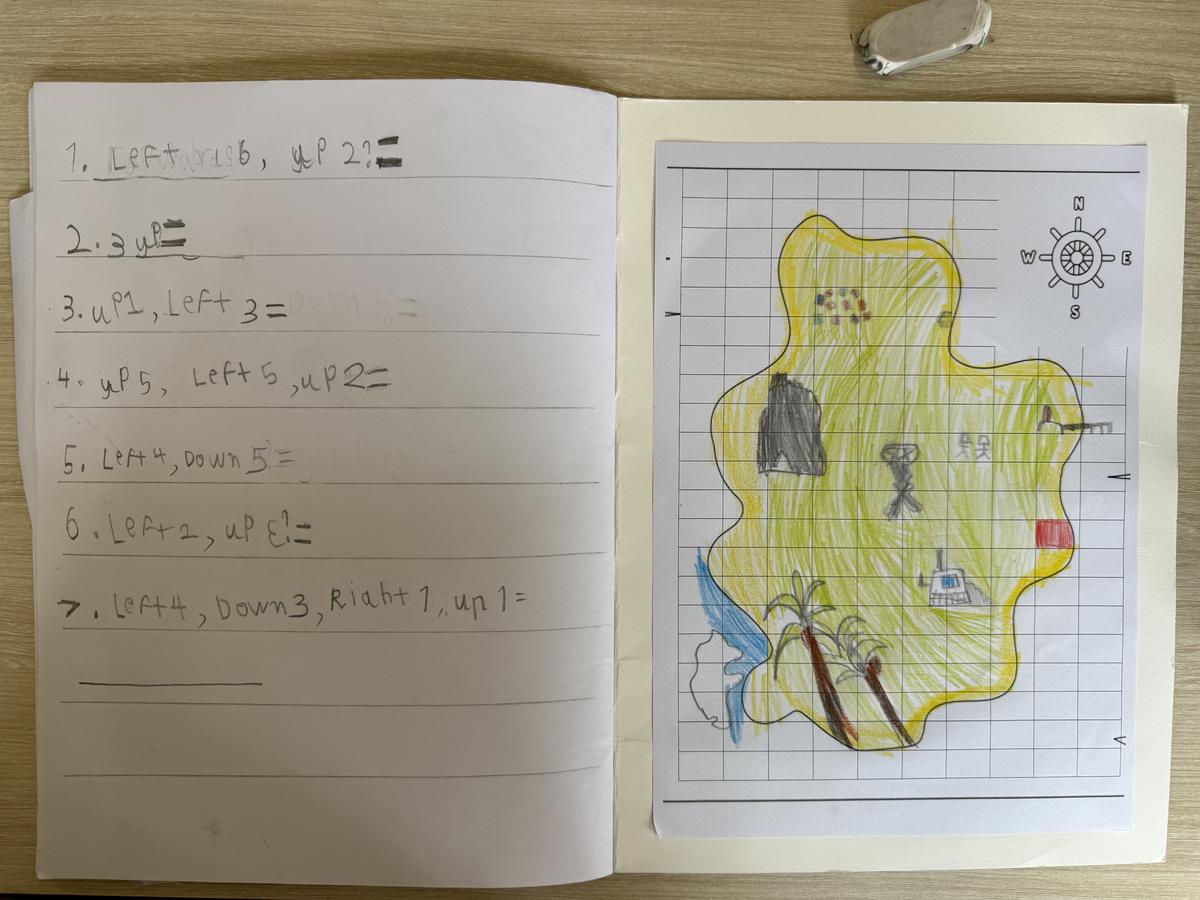 1. Left 6, up 2?=
2. 3 up=
3. up1, Left 3=
4. up 5, Left 5, up 2=
5. Left 4, Down 5=
6. Left 2, up 3?=
7. Left 4, Down 3, Right 1, up 1=
N
W E
S